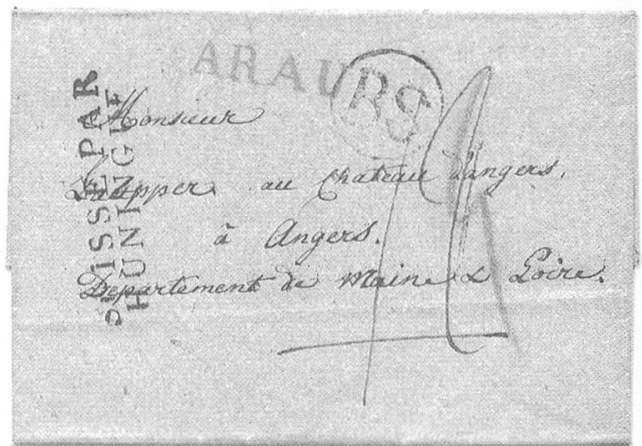 ARAU
BS
SUISSE PAR
HUNINGUE
Monsieur
au Chateau d'angers.
à Angers.
Departement de Maine & Loire.